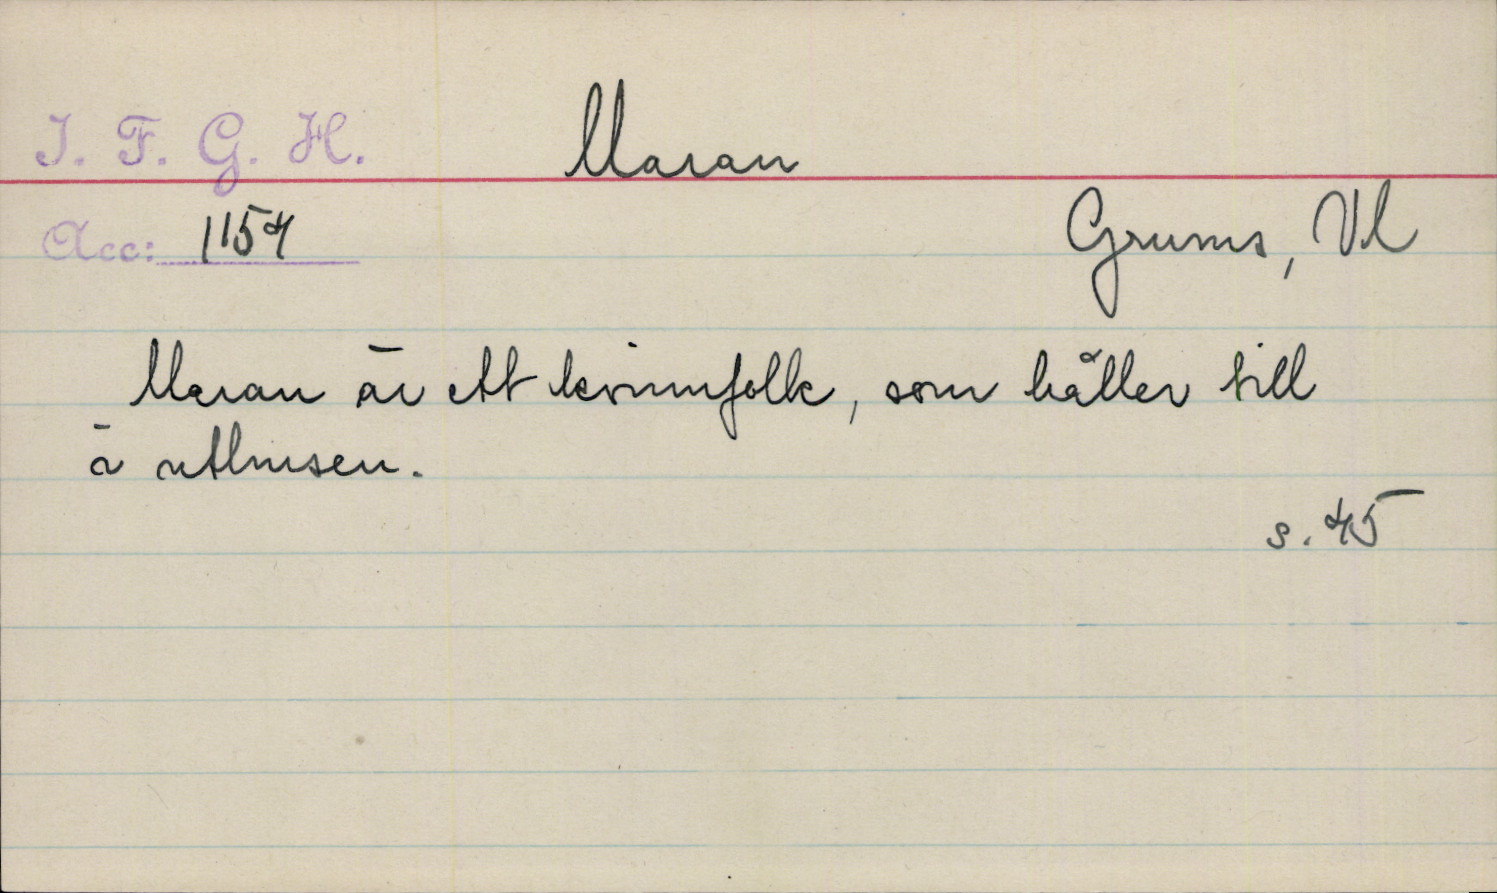 I. F. G. H.
Maran
Acc: 1154
Grums, Vl
Maran är ett kvinnfolk, som håller till
i uthusen.
s. 45